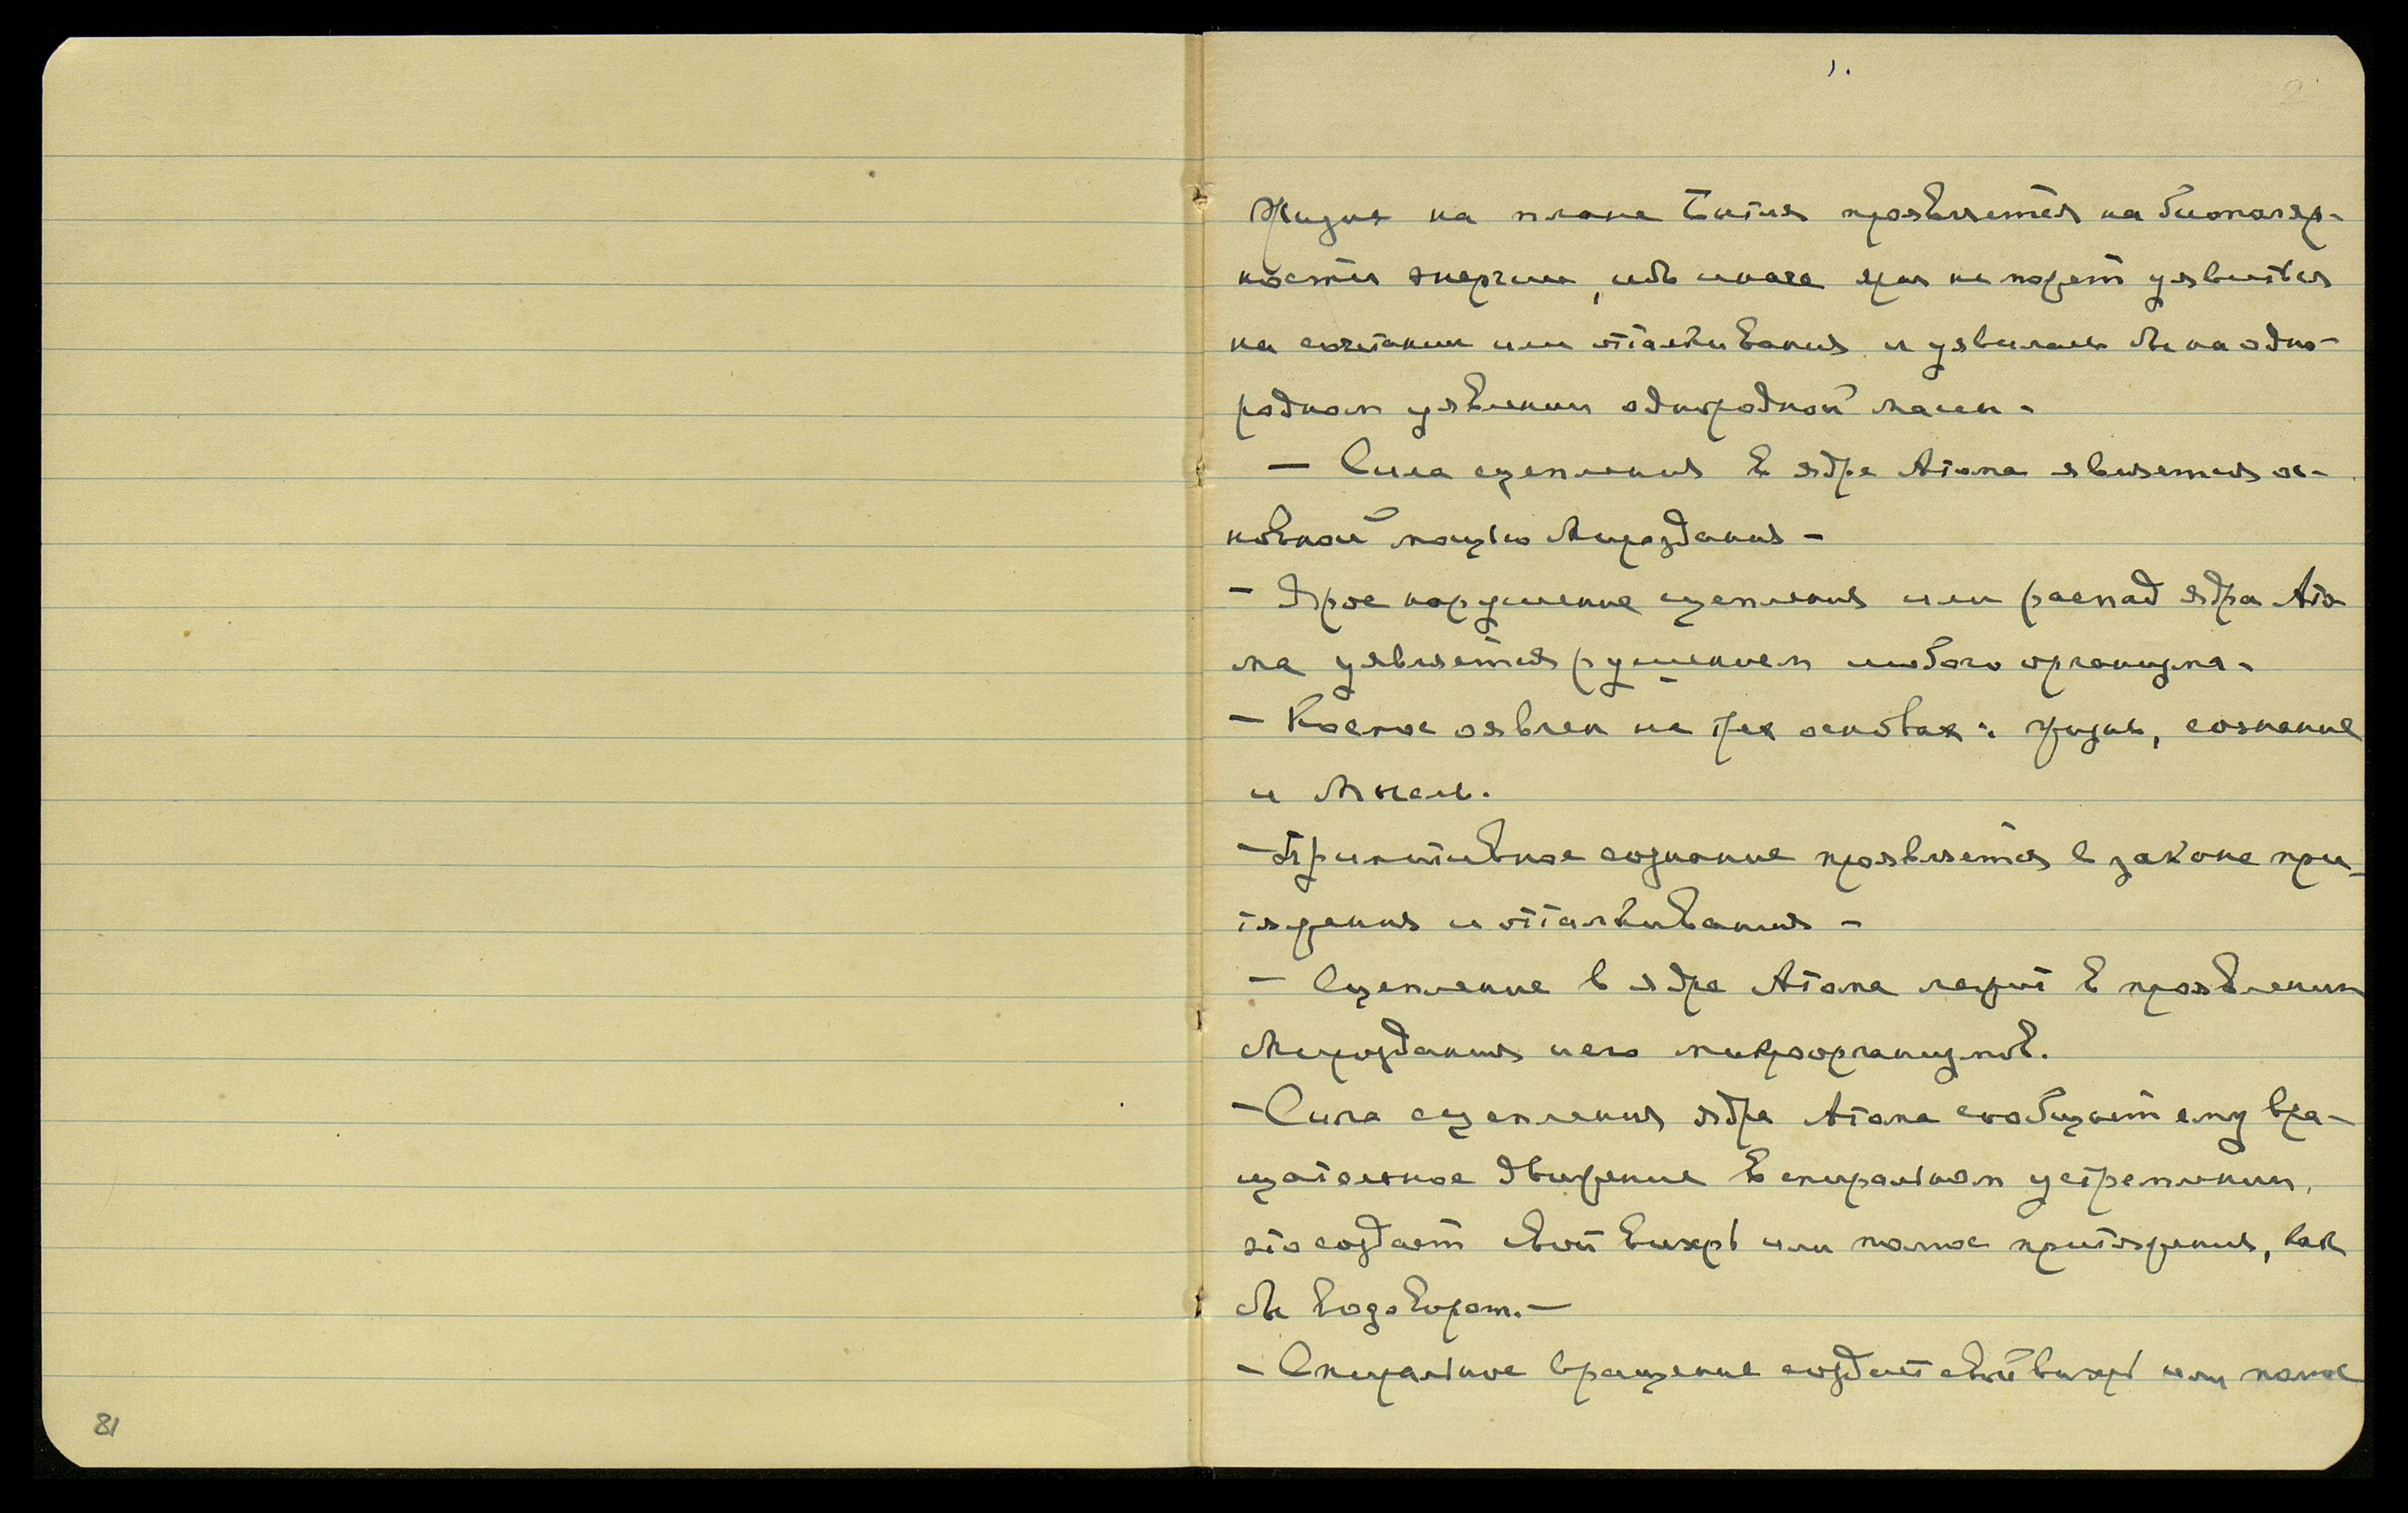 1.
2
Жизня на плане Бытия проявляется на биполяр-
ности энергии, ибо иначе яро не может уявиться
на сочетании или отталкивания и уявилась бы на одно-
родном уявлении однородной массы -
— Сила сцепления в ядре Атома является ос-
новной мощью Мироздания -
- Ярое нарушение сцепления или распад ядра Ато
ма уявляется рушением любого организма -
- Космос оявлен на трех основах: жизнь, сознание
и Мысль.
- Примитивное сознание проявляется в законе при-
тяжения и отталкивания -
- Сцепление в ядре Атома лежит в проявлении
Мироздания и его микроорганизмов.
- Сила сцепления ядра Атома сообщает ему вра-
щательное движение в спиральном устремлении,
это создает свой вихрь или полюс притяжения, как
бы водоворот. —
- Спиральное вращение создает свой вихрь или полюс
81